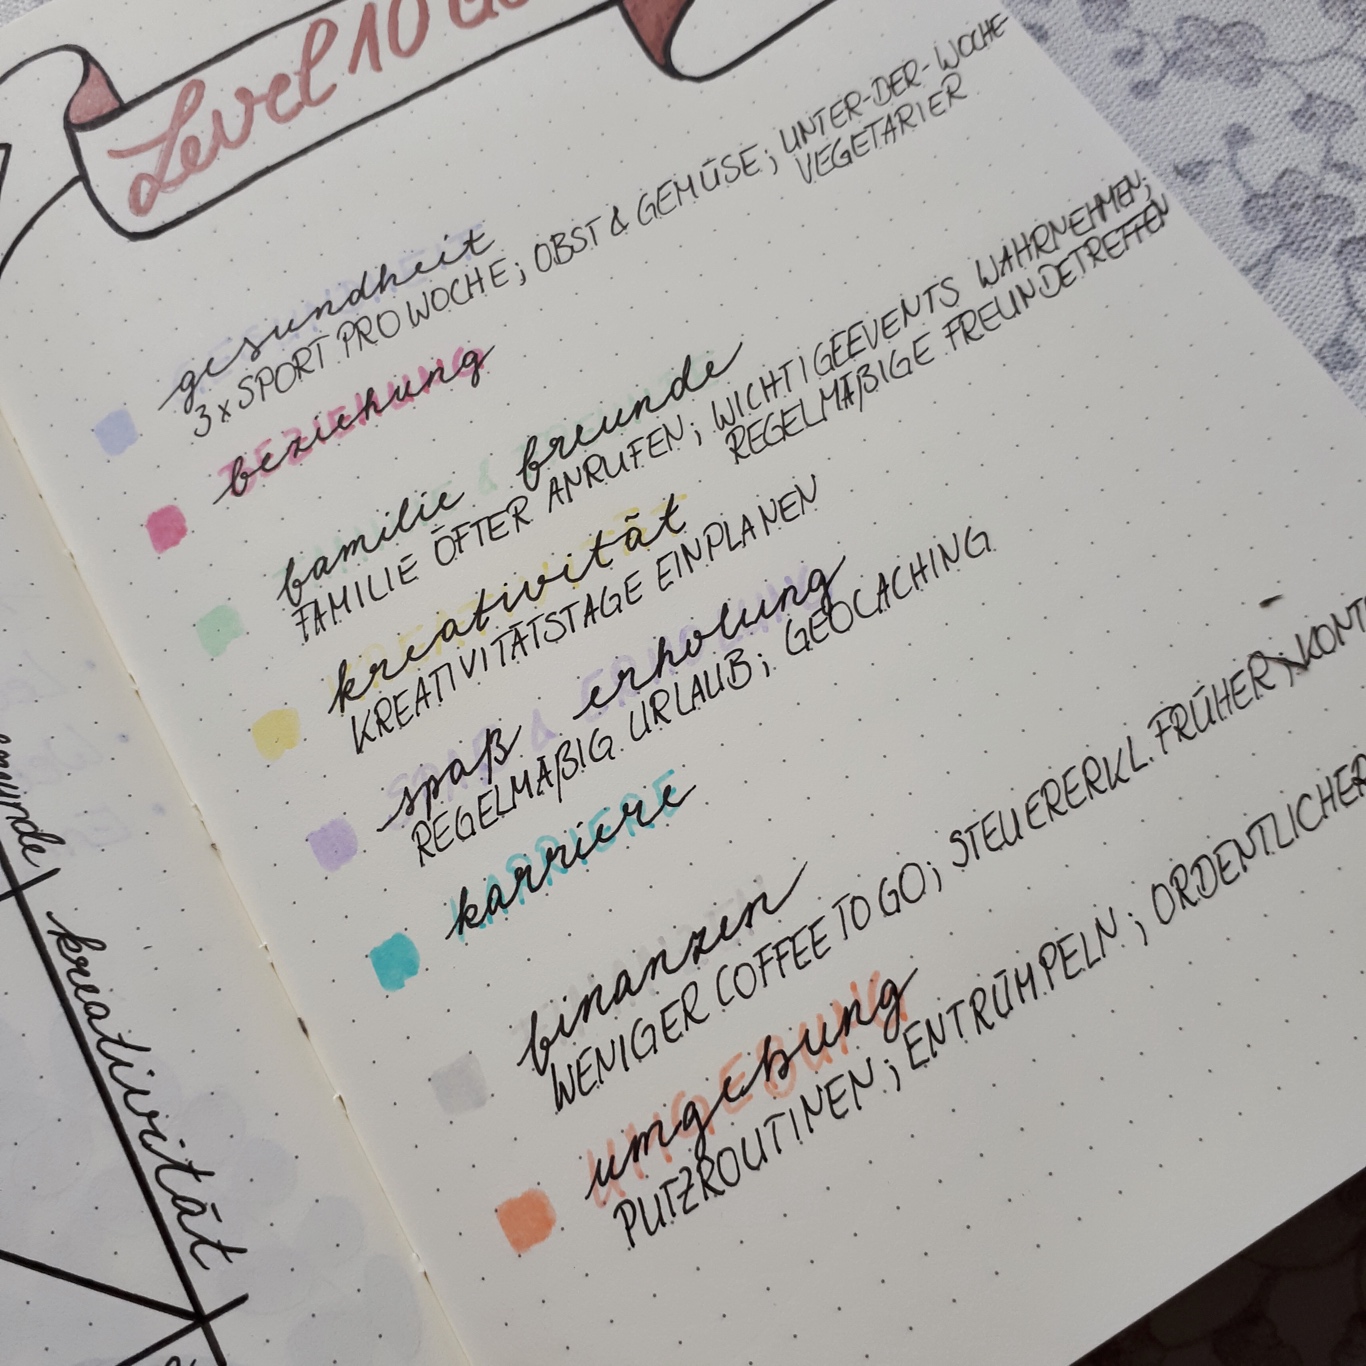 Level 10
gesundheit
3x SPORT PRO WOCHE; OBST & GEMÜSE; UNTER-DER-WOCHE-
VEGETARIER
beziehung
BEZIEHUNG
familie & freunde
FAMILIE ÖFTER ANRUFEN; WICHTIGE EVENTS WAHRNEHMEN;
REGELMÄßIGE FREUNDETREFFEN
kreativität
KREATIVITÄTSTAGE EINPLANEN
spaß & erholung
REGELMÄßIG URLAUB; GEOCACHING
karriere
KARRIERE
finanzen
WENIGER COFFEE TO GO; STEUERERKL. FRÜHER;
umgebung
UMGEBUNG
PUTZROUTINEN; ENTRÜMPELN; ORDENTLICHER
kreativität